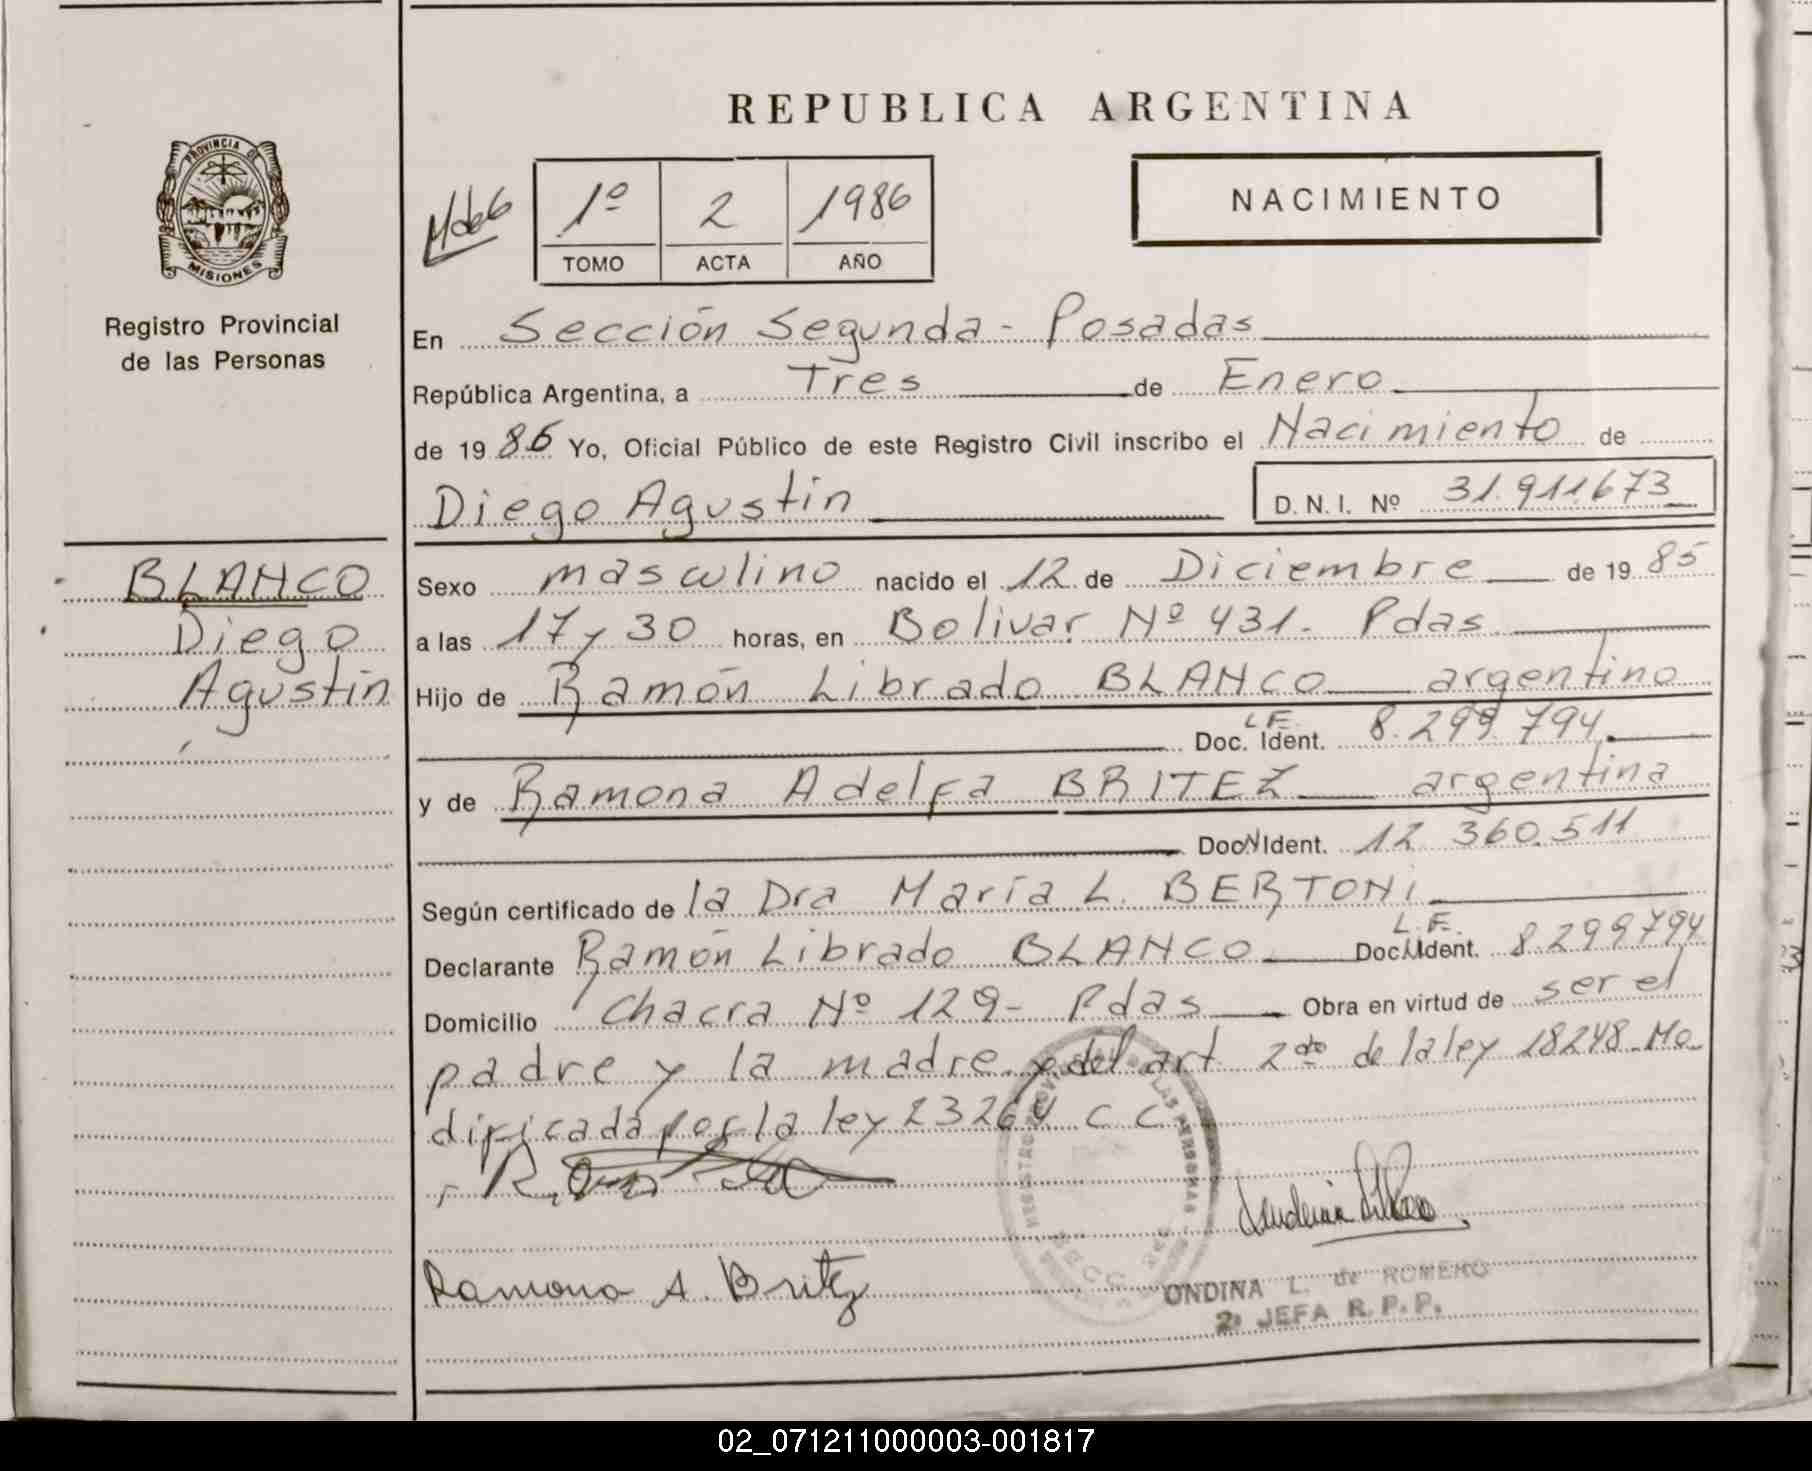 REPUBLICA ARGENTINA
PROVINCIA DE
MISIONES
Registro Provincial
de las Personas
1º 2 1986
TOMO ACTA AÑO
NACIMIENTO
En Sección Segunda - Posadas
República Argentina, a Tres de Enero
de 19 86 Yo, Oficial Público de este Registro Civil inscribo el Nacimiento de
Diego Agustín D.N.I. Nº 31.911.673
BLANCO
Diego
Agustín
Sexo masculino nacido el 12 de Diciembre de 19 85
a las 17 y 30 horas, en Bolivar Nº 431. Pdas
Hijo de Ramón Librado BLANCO argentino
L.E.
Doc. Ident. 8.299.794.
y de Ramona Adelfa BRITEZ argentina
Doc. Ident. 12 360.511
Según certificado de la Dra María L. BERTONI
L.E.
Declarante Ramón Librado BLANCO Doc. Ident. 8.299794
Domicilio Chacra Nº 129 - Pdas Obra en virtud de ser el
padre y la madre y del art 2do de la ley 18248. Mo
dificada por la ley 23264 C C.
Ramona A. Britez
ONDINA L. de ROMERO
2º JEFA R.P.P.
02_071211000003-001817